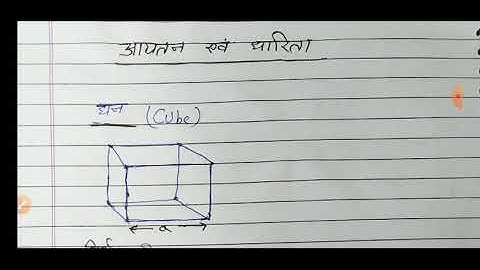 आयतन एवं धारिता
घन (Cube)
a